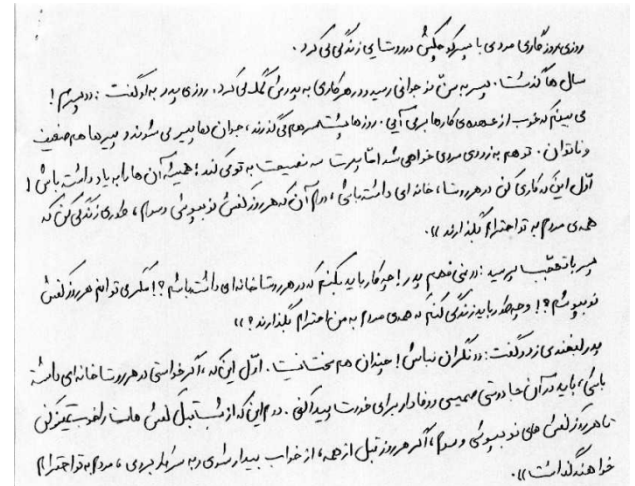 روزی روزگاری مردی با پسر کوچکش در روستایی زندگی می کرد.
سال ها گذشت. پسر به سن نوجوانی رسید و در هر کاری به پدرش کمک می کرد. روزی پدر به او گفت: «پسرم!
می بینم که خوب از عهده ی کارها برمی آیی. روزها پشت سر هم می گذرند، جوان ها پیر می شوند و پیرها هم ضعیف
و ناتوان. تو هم به زودی مردی خواهی شد امّا پدرت سه نصیحت به تو می کند؛ همیشه آن ها را به یاد داشته باش!
اوّل این که کاری کن در هر روستا، خانه ای داشته باشی، دوم آن که هر روز کفش نو بپوشی و سوم، طوری زندگی کن که
همه ی مردم به تو احترام بگذارند».
پسر با تعجّب پرسید: «نمی فهمم پدر! چه کار باید بکنم که در هر روستا خانه ای داشته باشم؟! مگر می توانم هر روز کفش
نو بپوشم؟! و چطور باید زندگی کنم که همه ی مردم به من احترام بگذارند؟»
پدر لبخندی زد و گفت: «نگران نباش! چندان هم سخت نیست. اوّل این که، اگر خواستی در هر روستا خانه ای داشته
باشی، باید در آن جا دوستی صمیمی و وفادار برای خودت پیدا کنی. دوم این که از شب قبل کفش هایت را خوب تمیز کن
تا هر روز کفش های نو بپوشی و سوم، اگر هر روز قبل از همه، از خواب بیدار شوی و به سر کار بروی، مردم به تو احترام
خواهند گذاشت».